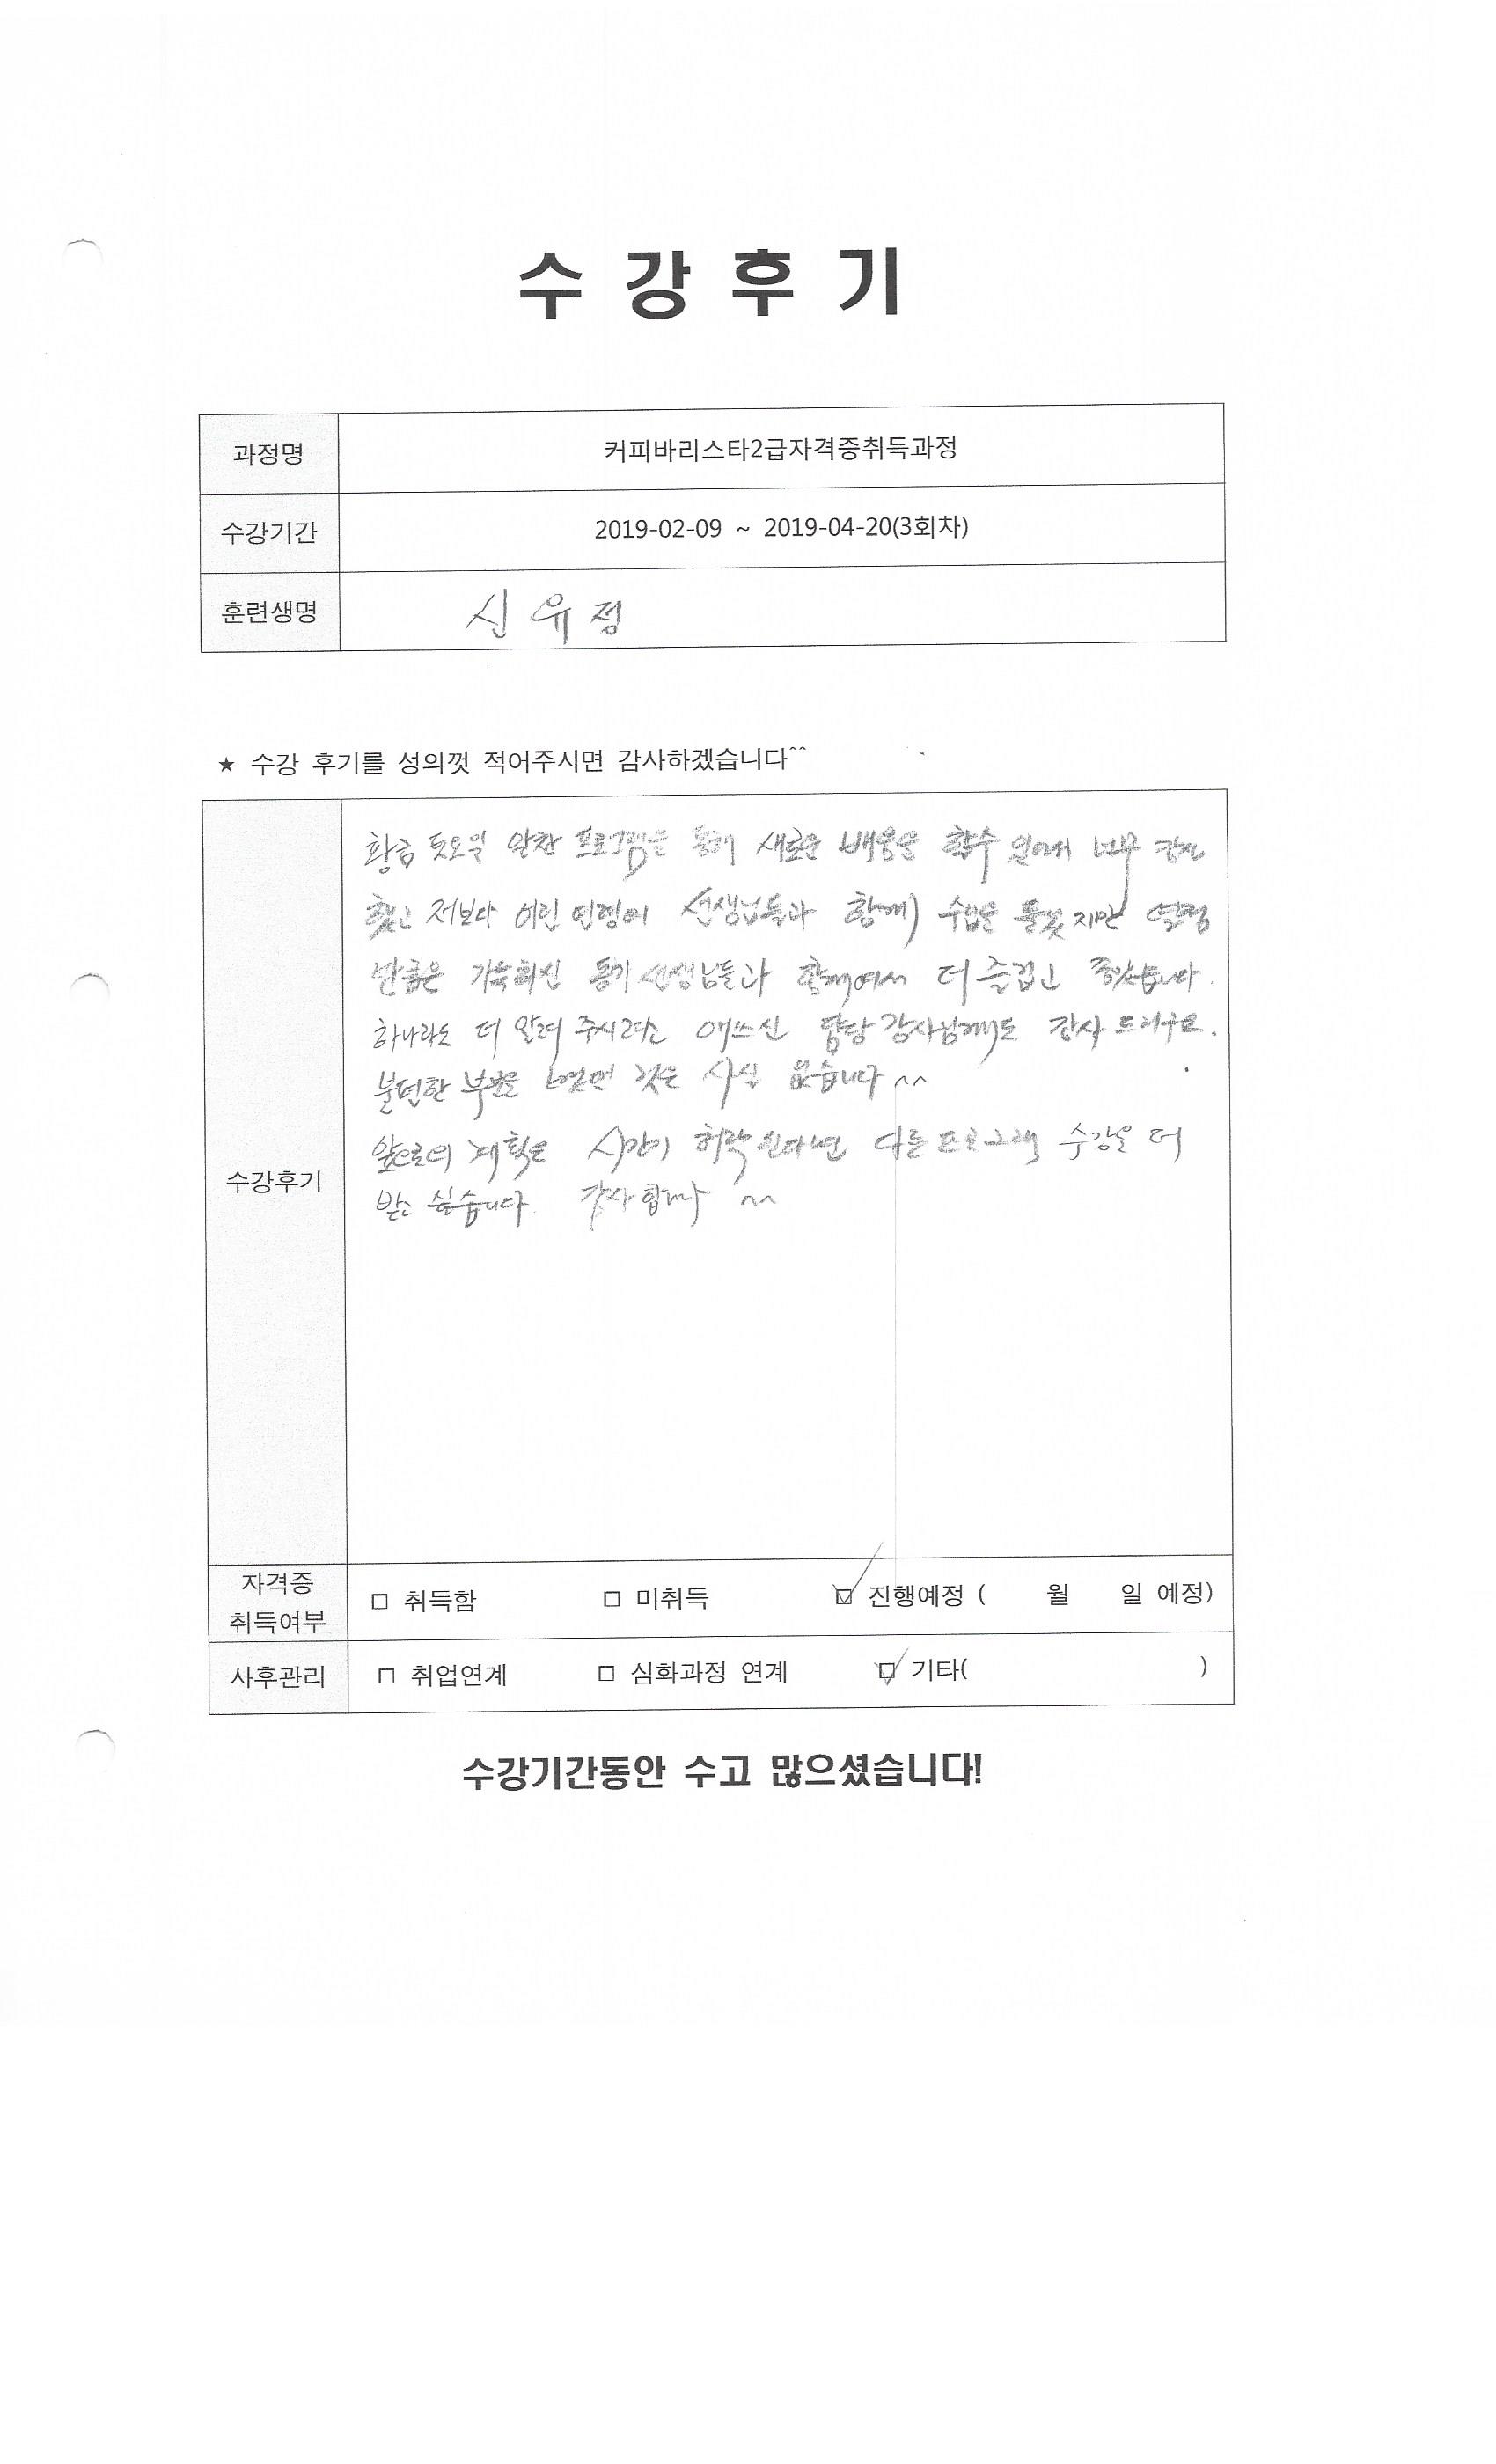 수 강 후 기
과정명 커피바리스타2급자격증취득과정
수강기간 2019-02-09 ~ 2019-04-20(3회차)
훈련생명 신유정
★ 수강 후기를 성의껏 적어주시면 감사하겠습니다^^
수강후기
황금 토요일 알찬 프로그램을 통해 새로운 배움을 할수 있어서 너무
저보다 어린 연령의 선생님들과 함께 수업을 들었지만 열정
만큼은 가득하신 동기 선생님들과 함께여서 더 즐겁고 좋았습니다.
하나라도 더 알려 주시려는 애쓰신 담당 강사님께도 감사 드리구요.
불편한 부분은 것은 사실 없습니다 ^^
앞으로의 계획은 시간이 허락 된다면 다른 프로그램 수강을 더
받고 싶습니다. 감사합니다 ^^
자격증 취득여부 □ 취득함 □ 미취득 ☑ 진행예정 ( 월 일 예정)
사후관리 □ 취업연계 □ 심화과정 연계 ☑ 기타( )
수강기간동안 수고 많으셨습니다!